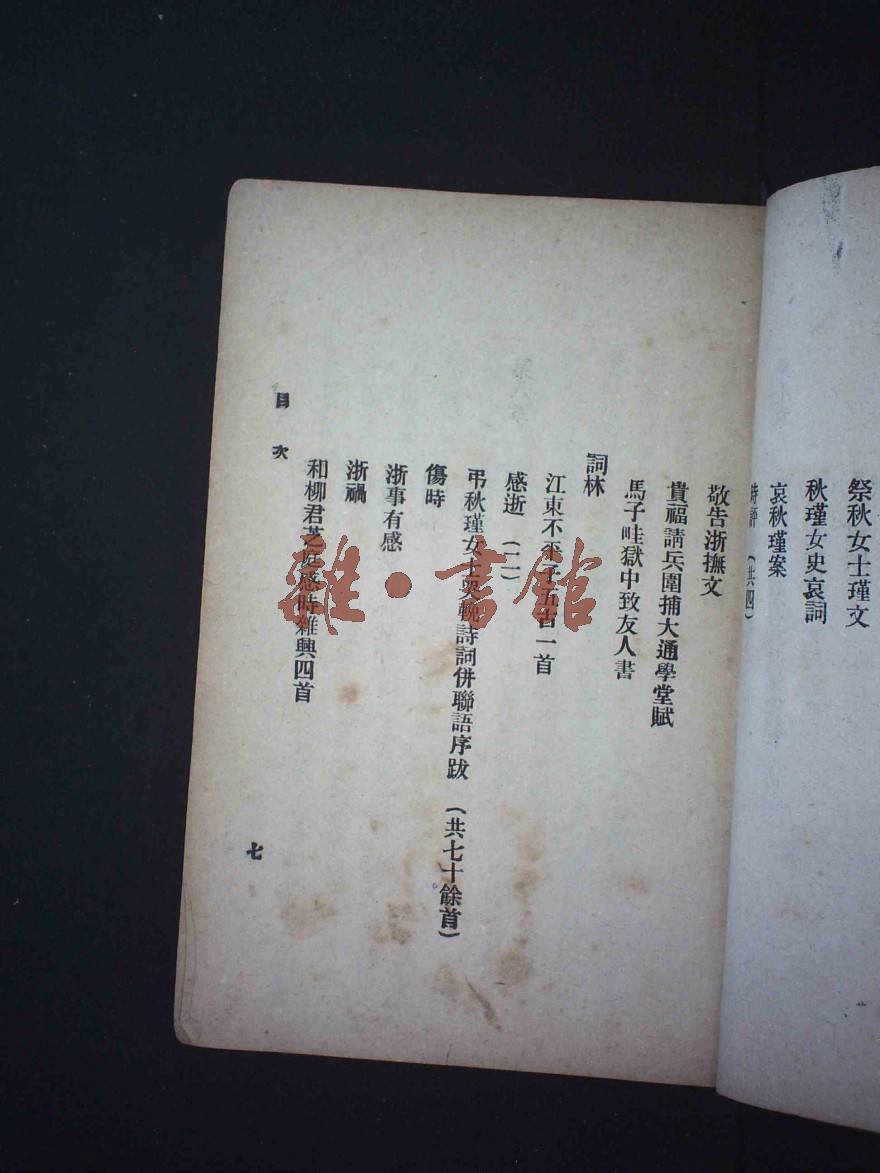 祭秋女士瑾文
秋瑾女史哀詞
哀秋瑾案
時評（共四）
敬告浙撫文
貴福請兵圍捕大通學堂賦
馬子畦獄中致友人書
詞林
江東不平子五古一首
感逝（二）
弔秋瑾女士哭輓詩詞併聯語序跋（共七十餘首）
傷時
浙事有感
浙禍
和柳君芝庭感時雜興四首
目次
七
雜·書館